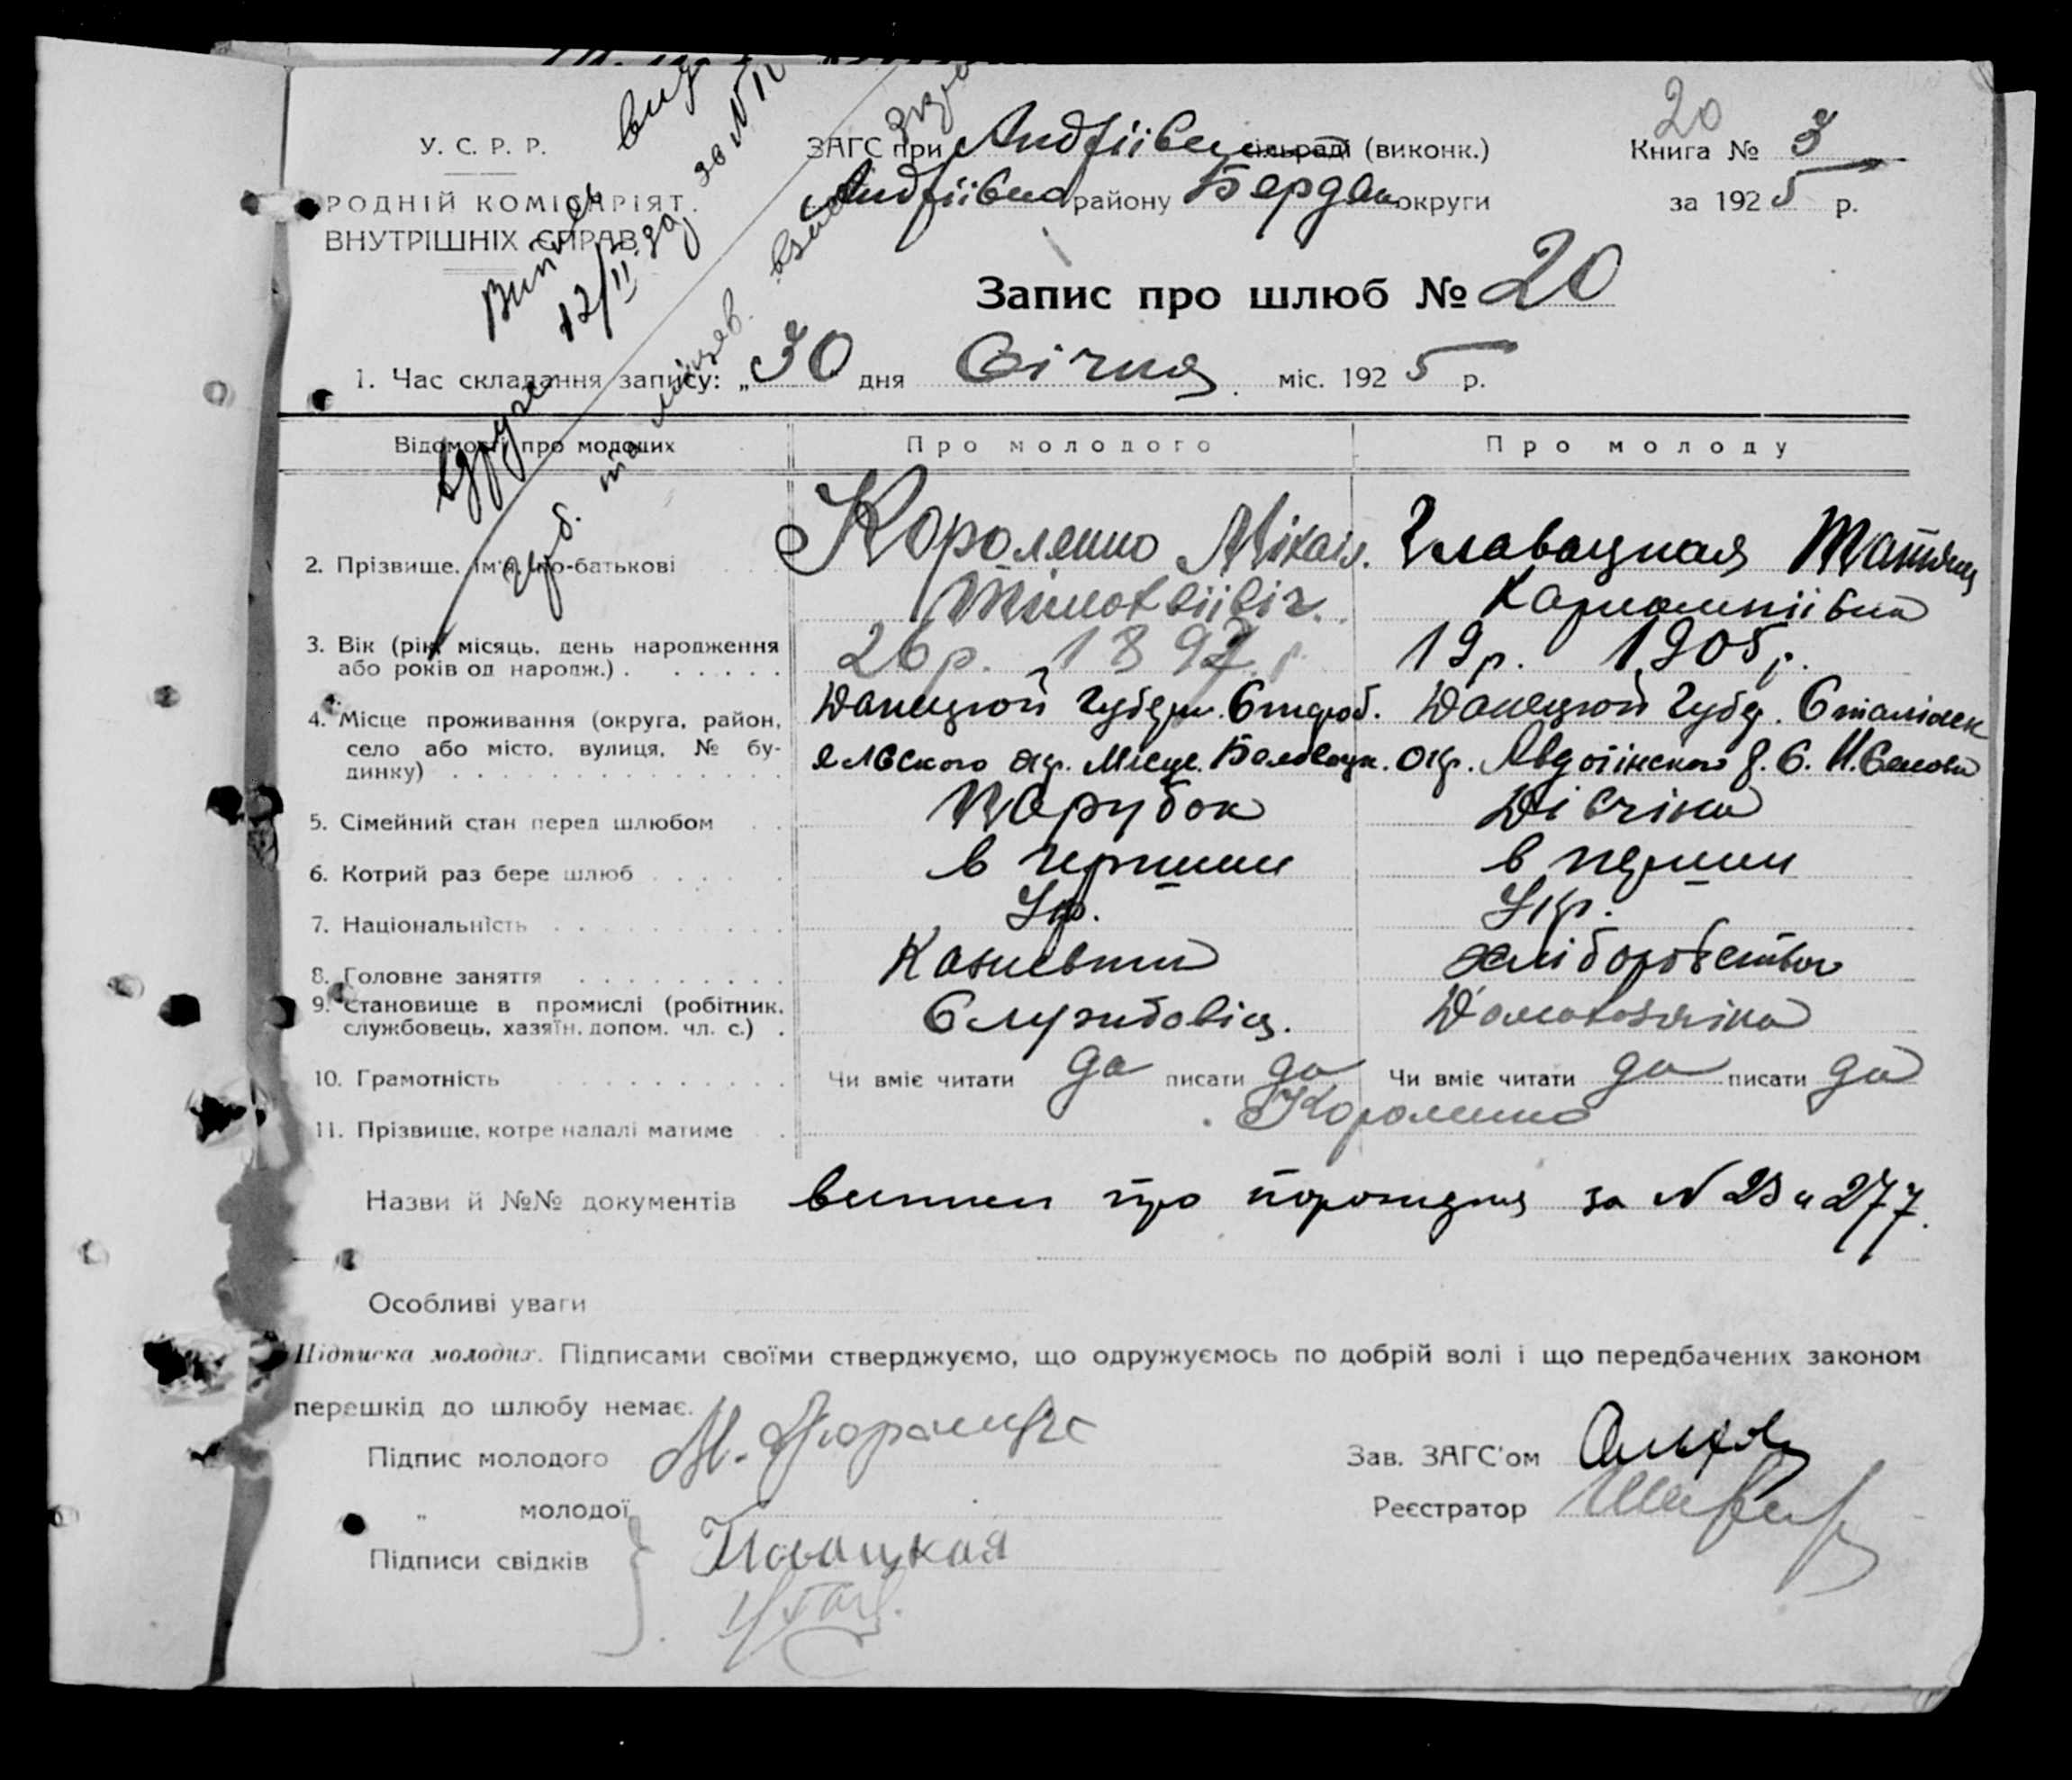 20
У. С. Р. Р.
ЗАГС при Андріівск сільраді (виконк.)
Книга № 3
РОДНІЙ КОМІСАРІЯТ.
ВНУТРІШНІХ СПРАВ
Андріівск району Бердян округи
за 1925 р.
Випись
12/II за №
Запис про шлюб № 20
1. Час складання запису: „30 дня Січня міс. 1925 р.
Відомості про молодих
Про молодого
Про молоду
2. Прізвище, ім'я, по-батькові
Короленко Міхаіл.
Тімофеіівіч.
Главацкая Татяна
3. Вік (рік, місяць, день народження
або років од народж.)
26 р. 1897 р.
19 р. 1905 р.
4. Місце проживання (округа, район,
село або місто, вулиця, № бу-
динку)
Данецкой Губерн. Староб.
ельского окр. Місце. Беловодк.
Данецкой Губер. Сталінск
окр. Авдотінского р. С.
5. Сімейний стан перед шлюбом
Парубок
Дівчіна
6. Котрий раз бере шлюб
в перший
в перший
7. Національність
Укр.
Укр.
8. Головне заняття
хліборобство
9. Становище в промислі (робітник,
службовець, хазяїн, допом. чл. с.)
Службовіц.
Домохазяіка
10. Грамотність
Чи вміє читати да писати да
Чи вміє читати да писати да
11. Прізвище, котре надалі матиме
Короленко
Назви й №№ документів
виписи про породження за № 23 и 277.
Особливі уваги
Підписка молодих. Підписами своїми стверджуємо, що одружуємось по добрій волі і що передбачених законом
перешкід до шлюбу немає.
Підпис молодого М. Короленко
Зав. ЗАГС'ом
„ молодої
Реєстратор
Підписи свідків
Главацкая